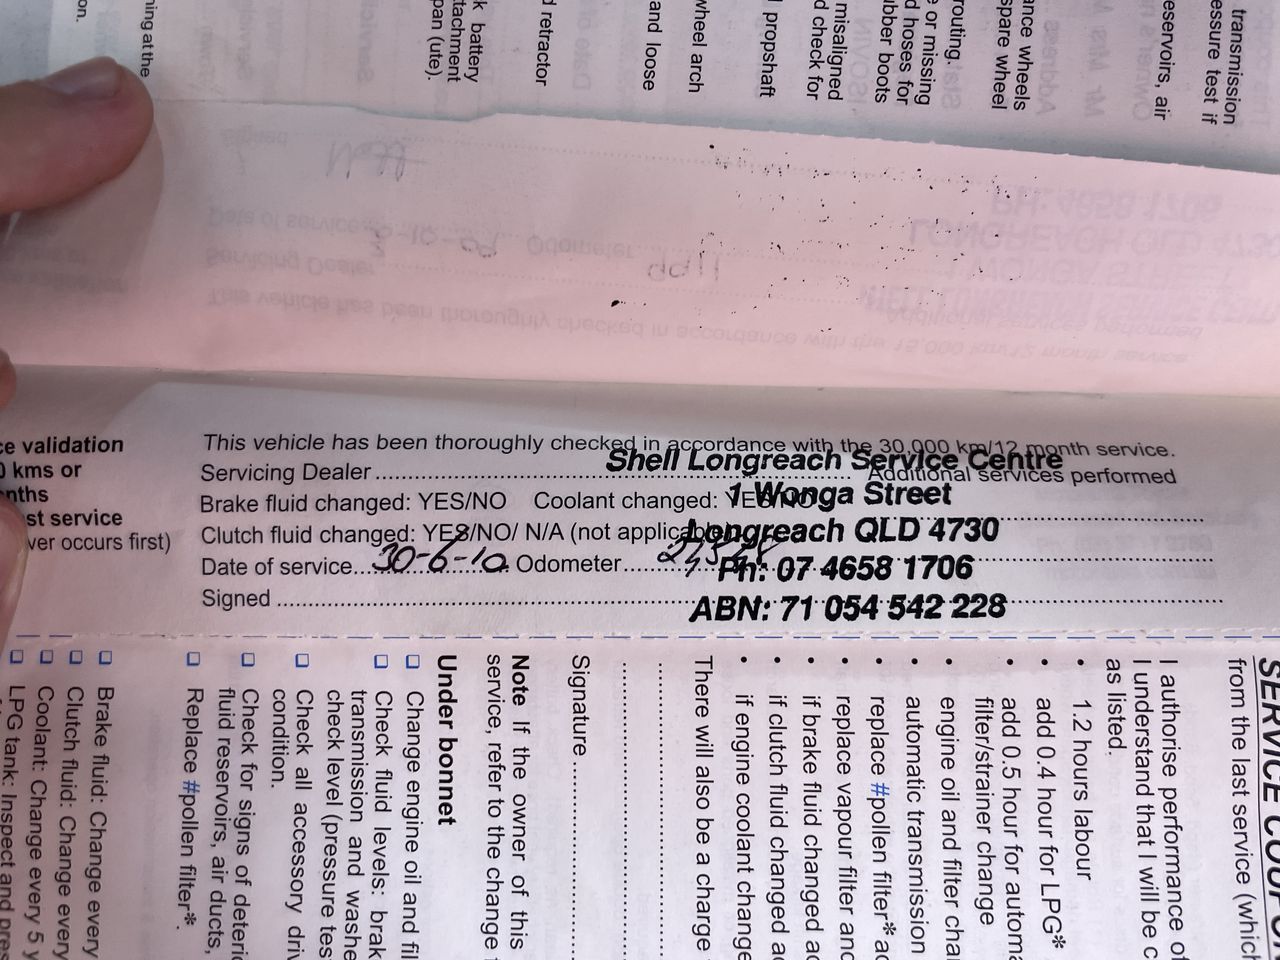 transmission
essure test if
eservoirs, air
ance wheels
spare wheel
routing.
e or missing
d hoses for
ubber boots
misaligned
d check for
l propshaft
wheel arch
and loose
d retractor
k battery
ttachment
pan (ute).
ning at the
on.
This vehicle has been thoroughly checked in accordance with the 15,000 km/12 month service.
Additional services performed
Servicing Dealer
Date of service Odometer
LONGREACH QLD 4730
PH: 4658 1706
ce validation
0 kms or
nths
st service
ver occurs first)
This vehicle has been thoroughly checked in accordance with the 30,000 km/12 month service.
Servicing Dealer Additional services performed
Brake fluid changed: YES/NO Coolant changed: YES/NO
Clutch fluid changed: YES/NO/ N/A (not applicable)
Date of service 30-6-10 Odometer
Signed
Shell Longreach Service Centre
1 Wonga Street
Longreach QLD 4730
Ph: 07 4658 1706
ABN: 71 054 542 228
SERVICE COUPON
from the last service (whic
I authorise performance of
I understand that I will be c
as listed.
• 1.2 hours labour
• add 0.4 hour for LPG*
• add 0.5 hour for automa
filter/strainer change
• engine oil and filter cha
• automatic transmission
• replace #pollen filter* ac
• replace vapour filter and
• if brake fluid changed ac
• if clutch fluid changed ac
• if engine coolant change
There will also be a charge
Signature
Note If the owner of this
service, refer to the change
Under bonnet
Change engine oil and fil
Check fluid levels: brak
transmission and washe
check level (pressure tes
Check all accessory driv
condition.
Check for signs of deteri
fluid reservoirs, air ducts,
Replace #pollen filter*.
Brake fluid: Change every
Clutch fluid: Change every
Coolant: Change every 5 y
LPG tank: Inspect and pres